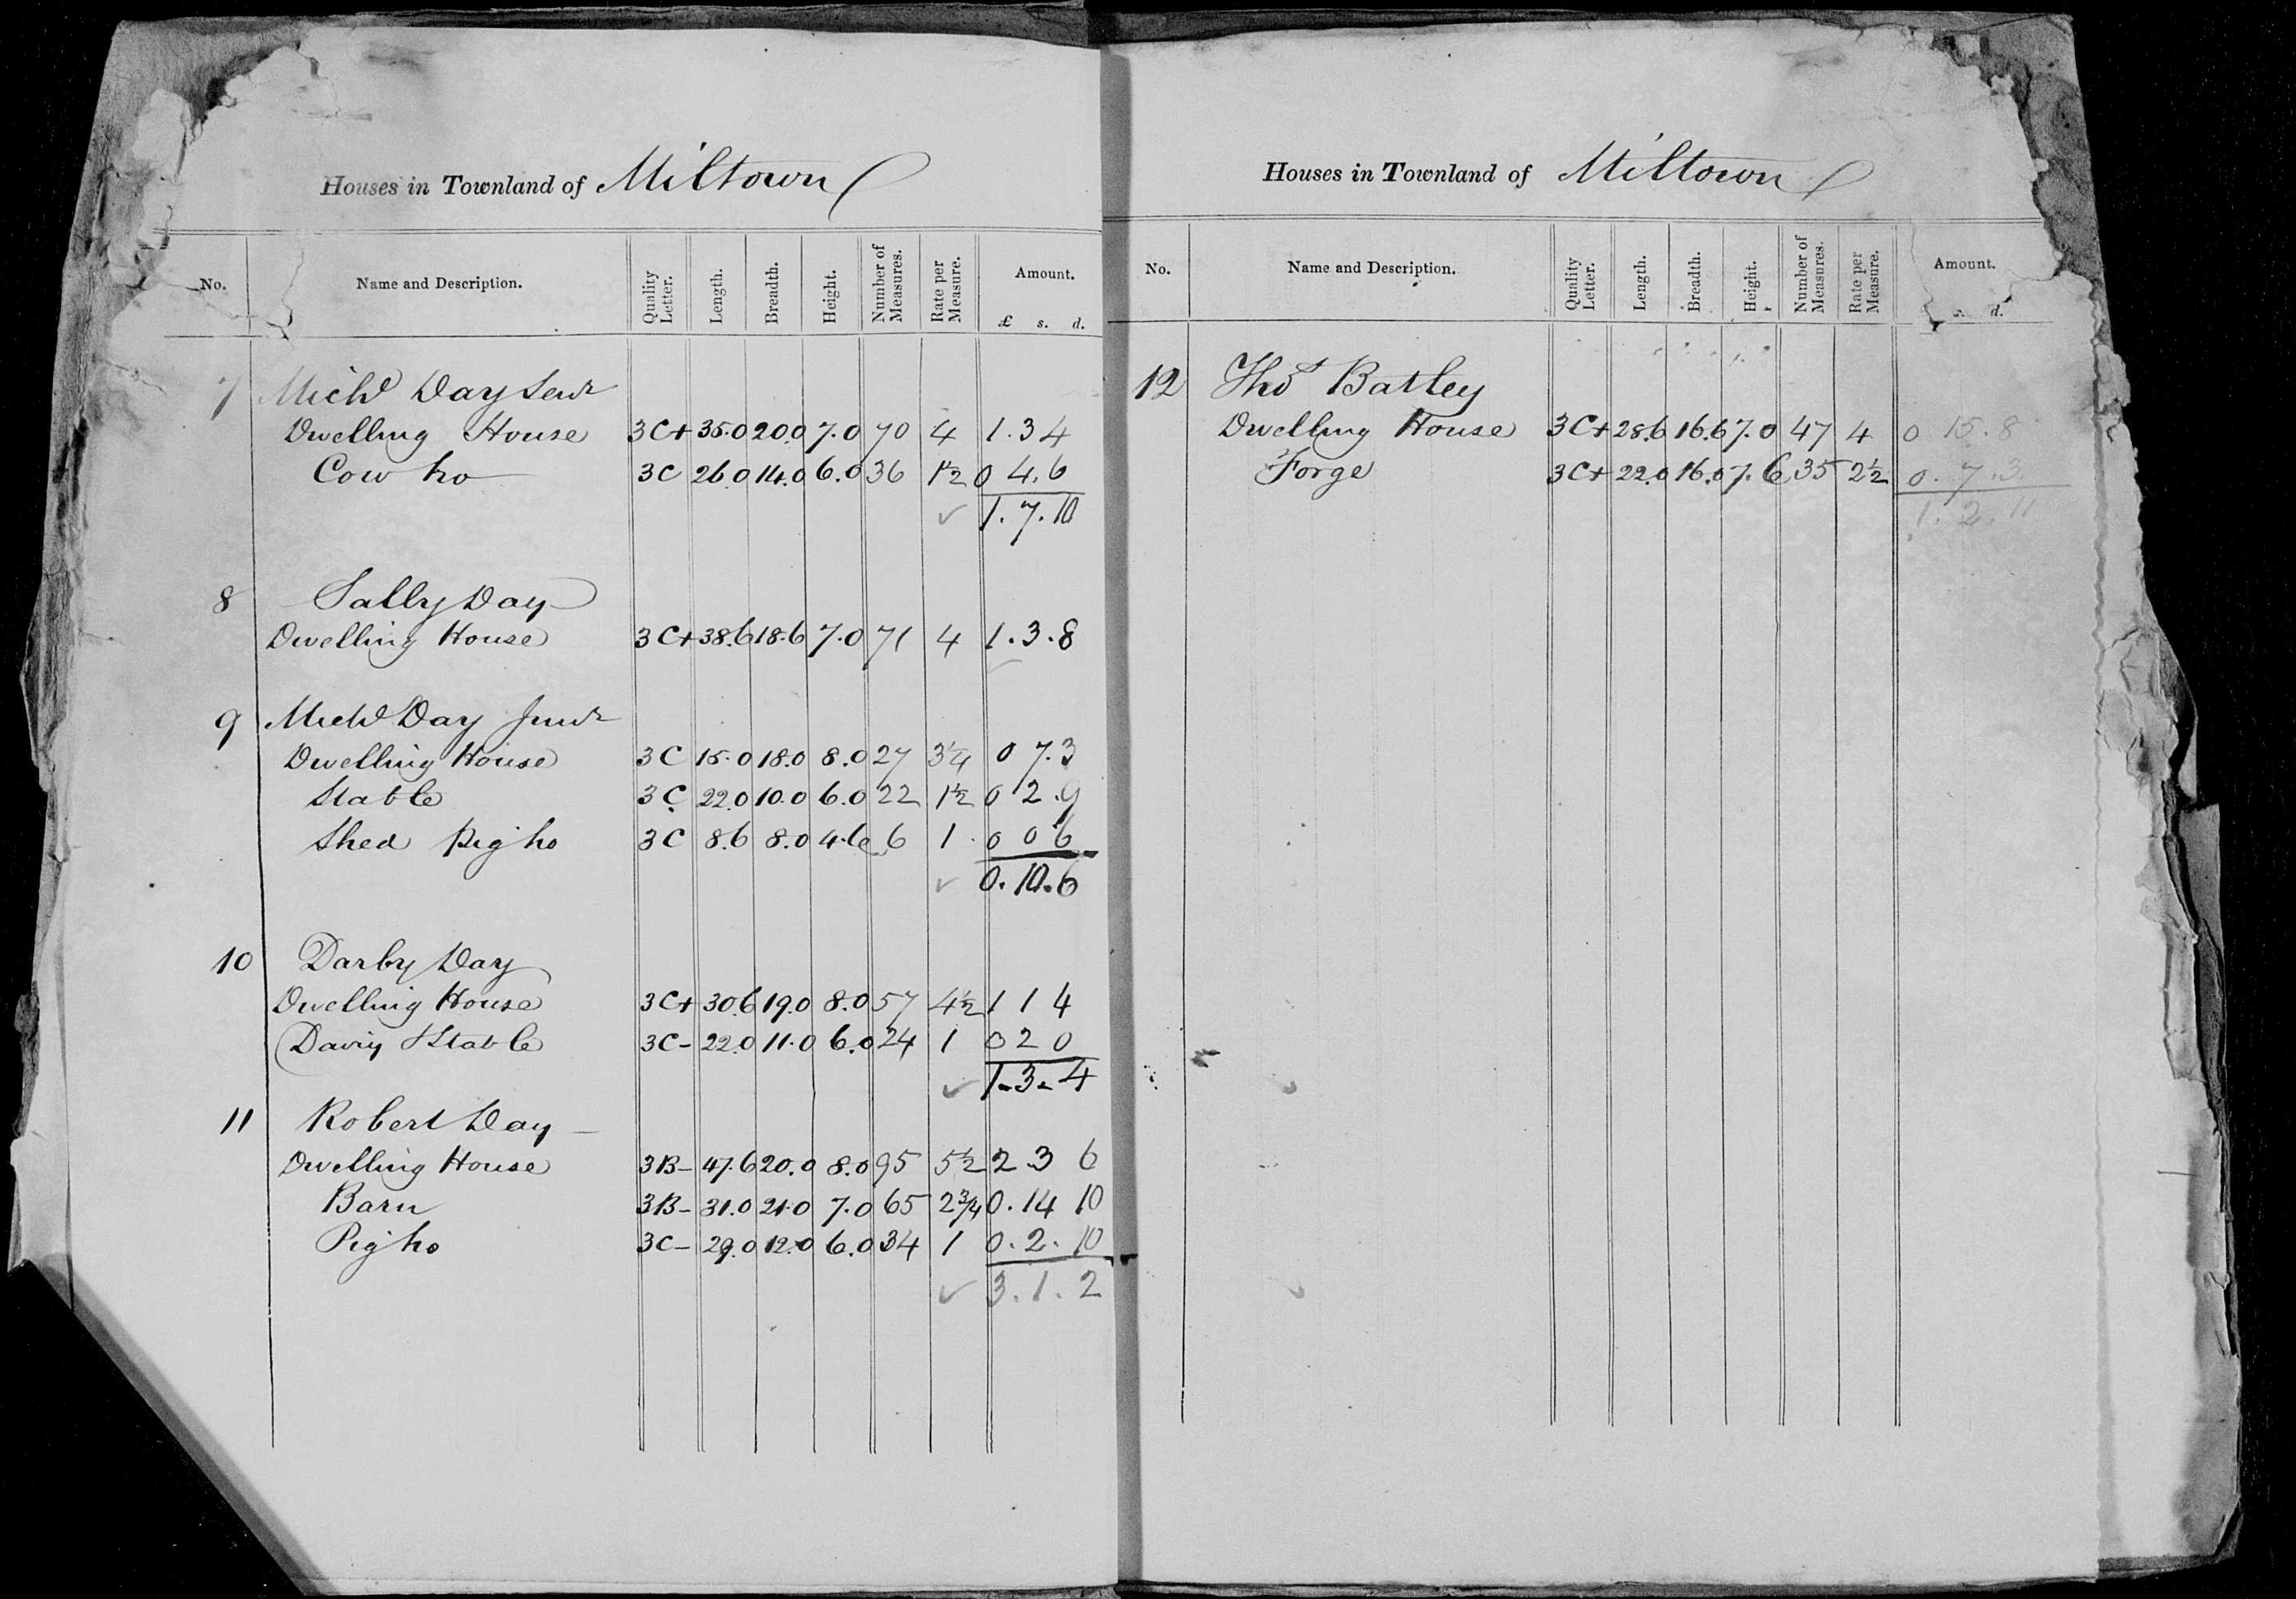 Houses in Townland of Miltown
No. Name and Description. Quality Letter. Length. Breadth. Height. Number of Measures. Rate per Measure. Amount.
£ s. d.
7 Michl Day Senr
Dwelling House 3C+ 35.0 20.0 7.0 70 4 1.3 4
Cow ho 3C 26.0 14.0 6.0 36 1½ 0 4.6
✓ 1.7.10
8 Sally Day
Dwelling House 3C+ 38.6 18.6 7.0 71 4 1.3.8
9 Michl Day Junr
Dwelling House 3C 15.0 18.0 8.0 27 3¼ 0 7.3
Stable 3C 22.0 10.0 6.0 22 1½ 0 2.9
Shed Pig ho 3C 8.6 8.0 4.6 6 1 0 0 6
✓ 0.10.6
10 Darby Day
Dwelling House 3C+ 30.6 19.0 8.0 57 4½ 1 1 4
Dairy Stable 3C- 22.0 11.0 6.0 24 1 0 2 0
✓ 1-3-4
11 Robert Day
Dwelling House 3B- 47.6 20.0 8.0 95 5½ 2 3 6
Barn 3B- 31.0 21.0 7.0 65 2¾ 0.14 10
Pig ho 3C- 29.0 12.0 6.0 34 1 0.2.10
✓ 3.1.2
Houses in Townland of Miltown
No. Name and Description. Quality Letter. Length. Breadth. Height. Number of Measures. Rate per Measure. Amount.
s. d.
12 Thos Batley
Dwelling House 3C+ 28.6 16.6 7.0 47 4 0 15.8
Forge 3C+ 22.0 16.0 7.6 35 2½ 0.7.3
1.2.11